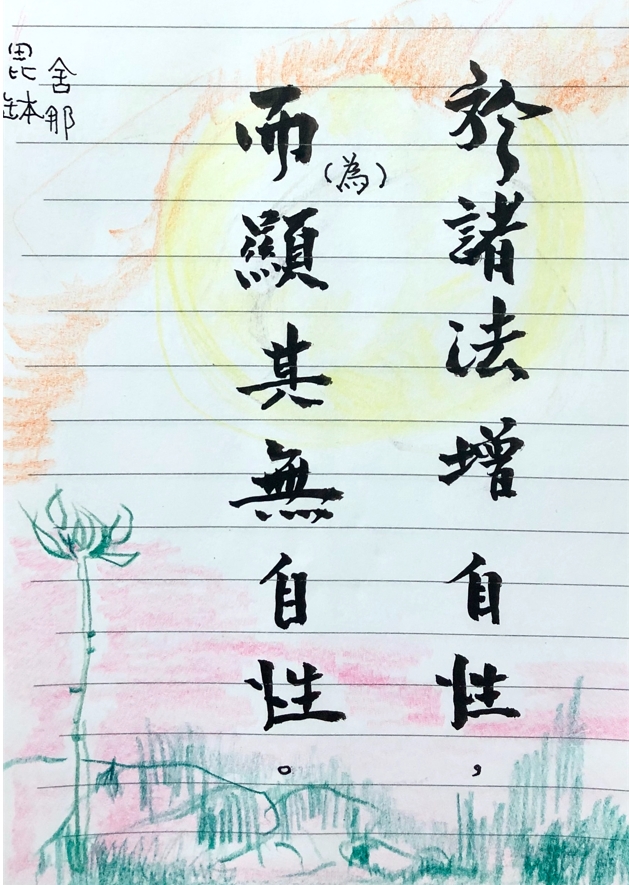 於諸法增自性，
而(為)顯其無自性。
毘缽
舍那